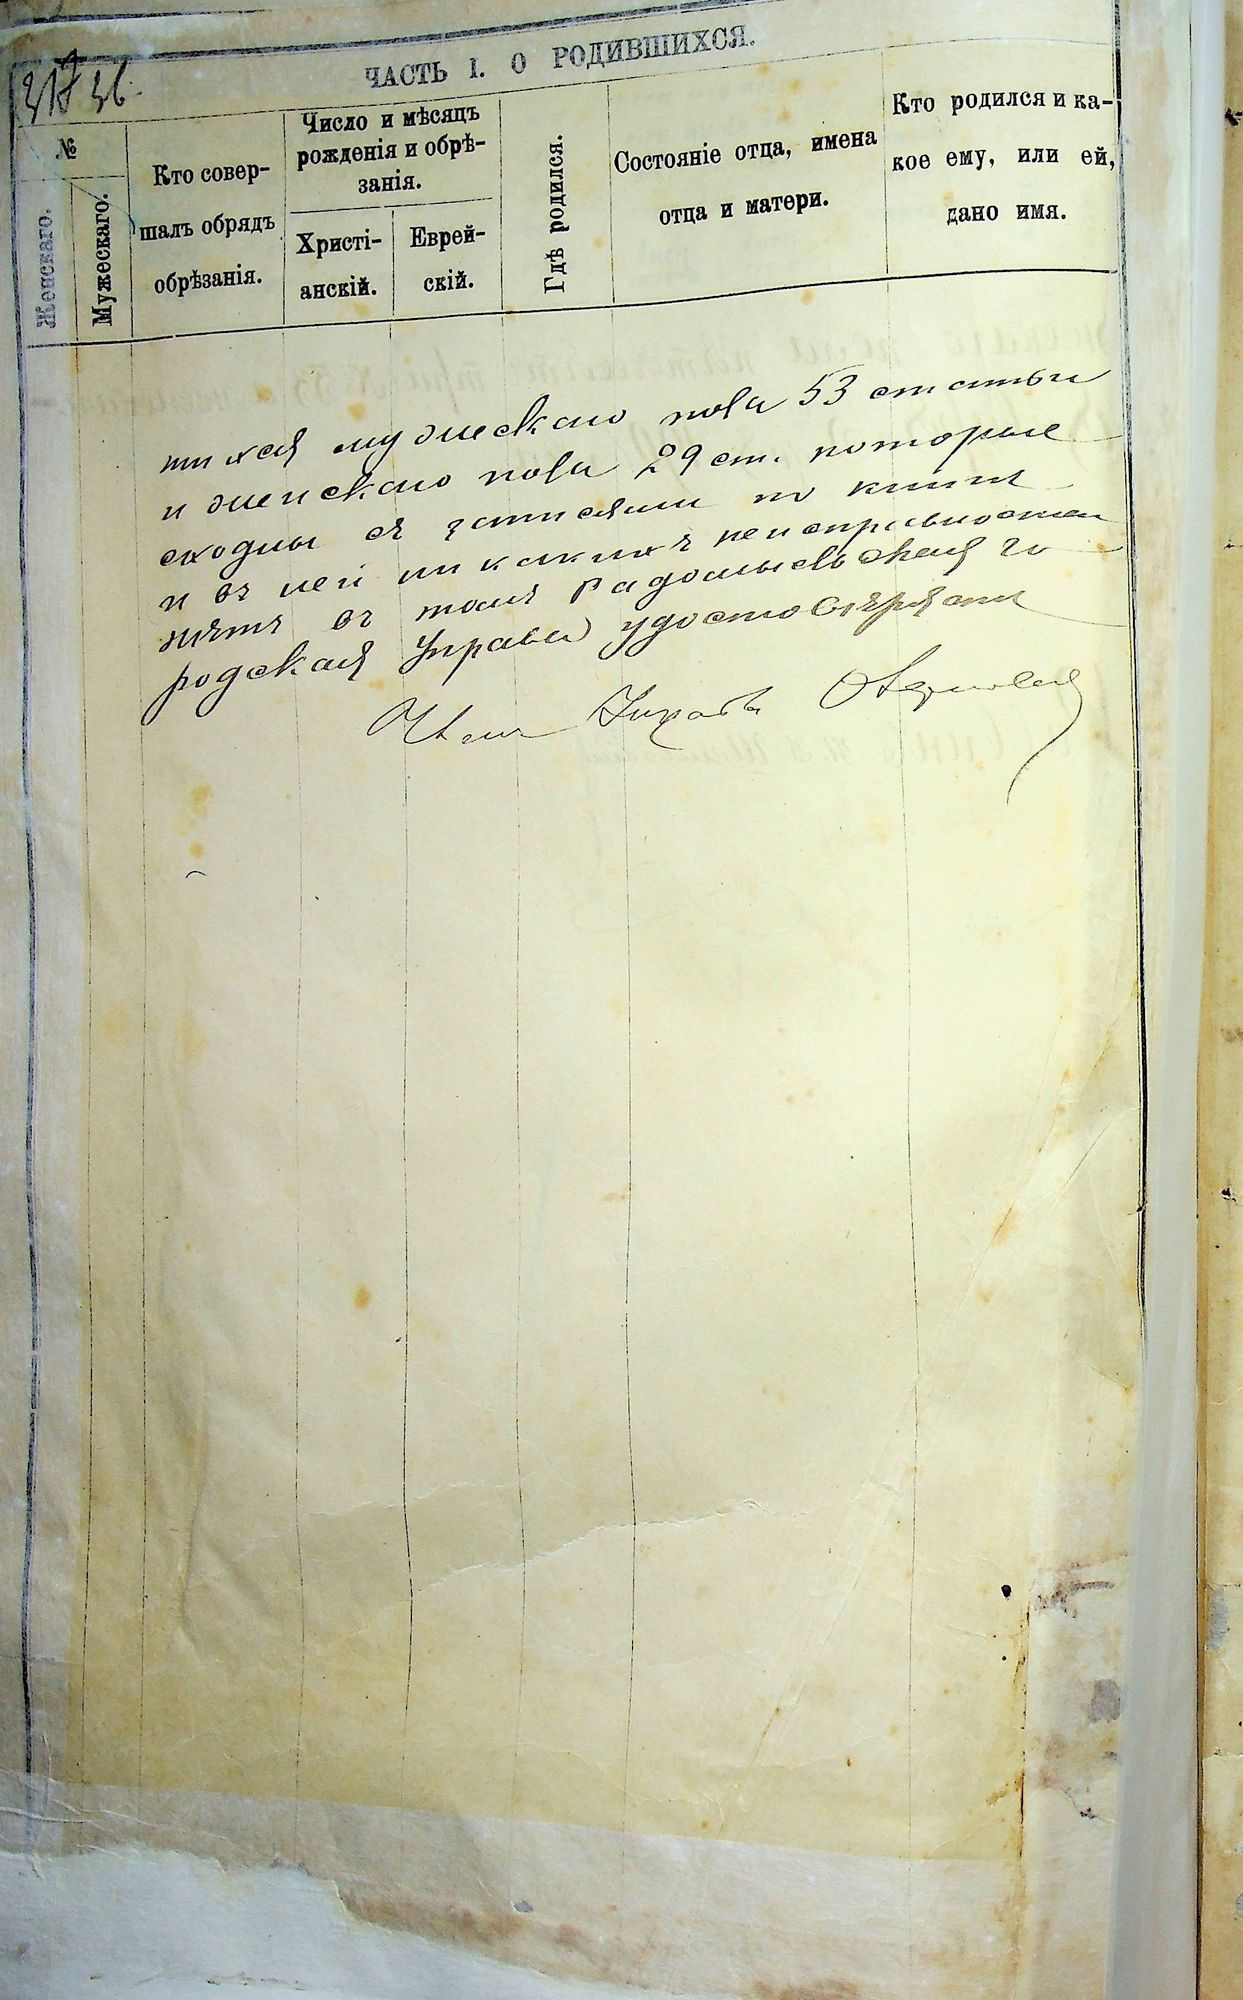 36.
ЧАСТЬ I. О РОДИВШИХСЯ.
№
Женскаго.
Мужескаго.
Кто совер-
шалъ обрядъ
обрѣзанія.
Число и мѣсяцъ
рожденія и обрѣ-
занія.
Христі-
анскій.
Еврей-
скій.
Гдѣ родился.
Состояніе отца, имена
отца и матери.
Кто родился и ка-
кое ему, или ей,
дано имя.
шихся мужескаго пола 53 статьи
и женскаго пола 29 ст. которые
сходны съ записями по книге
и въ ней ни какихъ неисправностей
нѣтъ въ томъ Радомысльская Го
родская Управа удостовѣряетъ
Членъ Управы